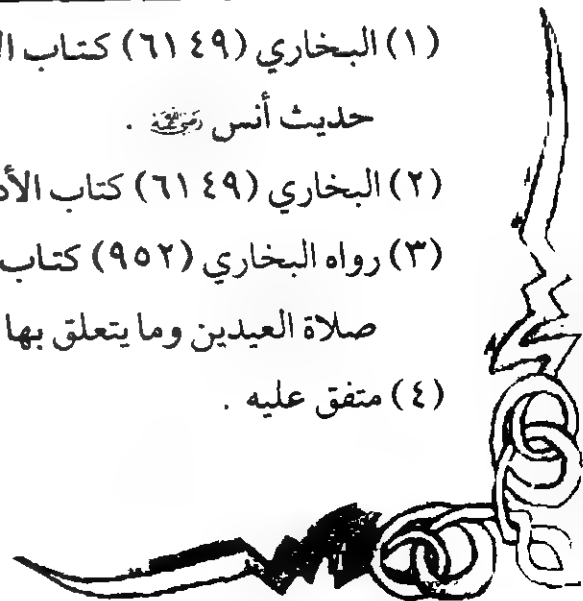 (١) البخاري (٦١٤٩) كتاب
حديث أنس رضي الله عنه .
(٢) البخاري (٦١٤٩) كتاب
(٣) رواه البخاري (٩٥٢) كتاب
صلاة العيدين وما يتعلق بها
(٤) متفق عليه .